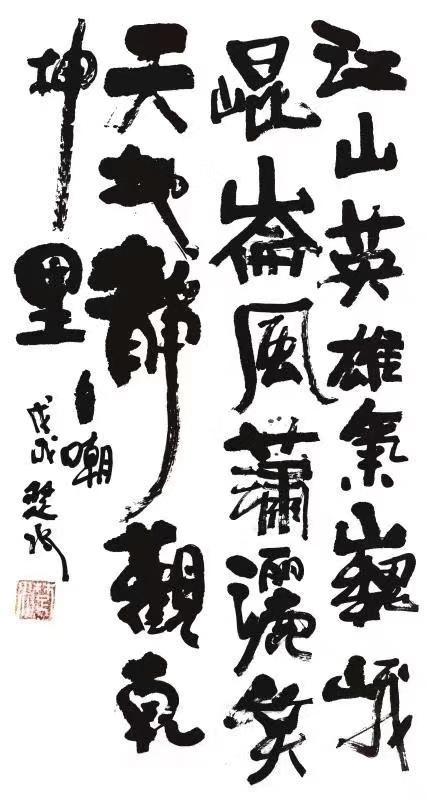 江山英雄氣巍峨
崐崙風蕭灑笑
天地靜觀乾
坤里
自嘲
戊戌楚